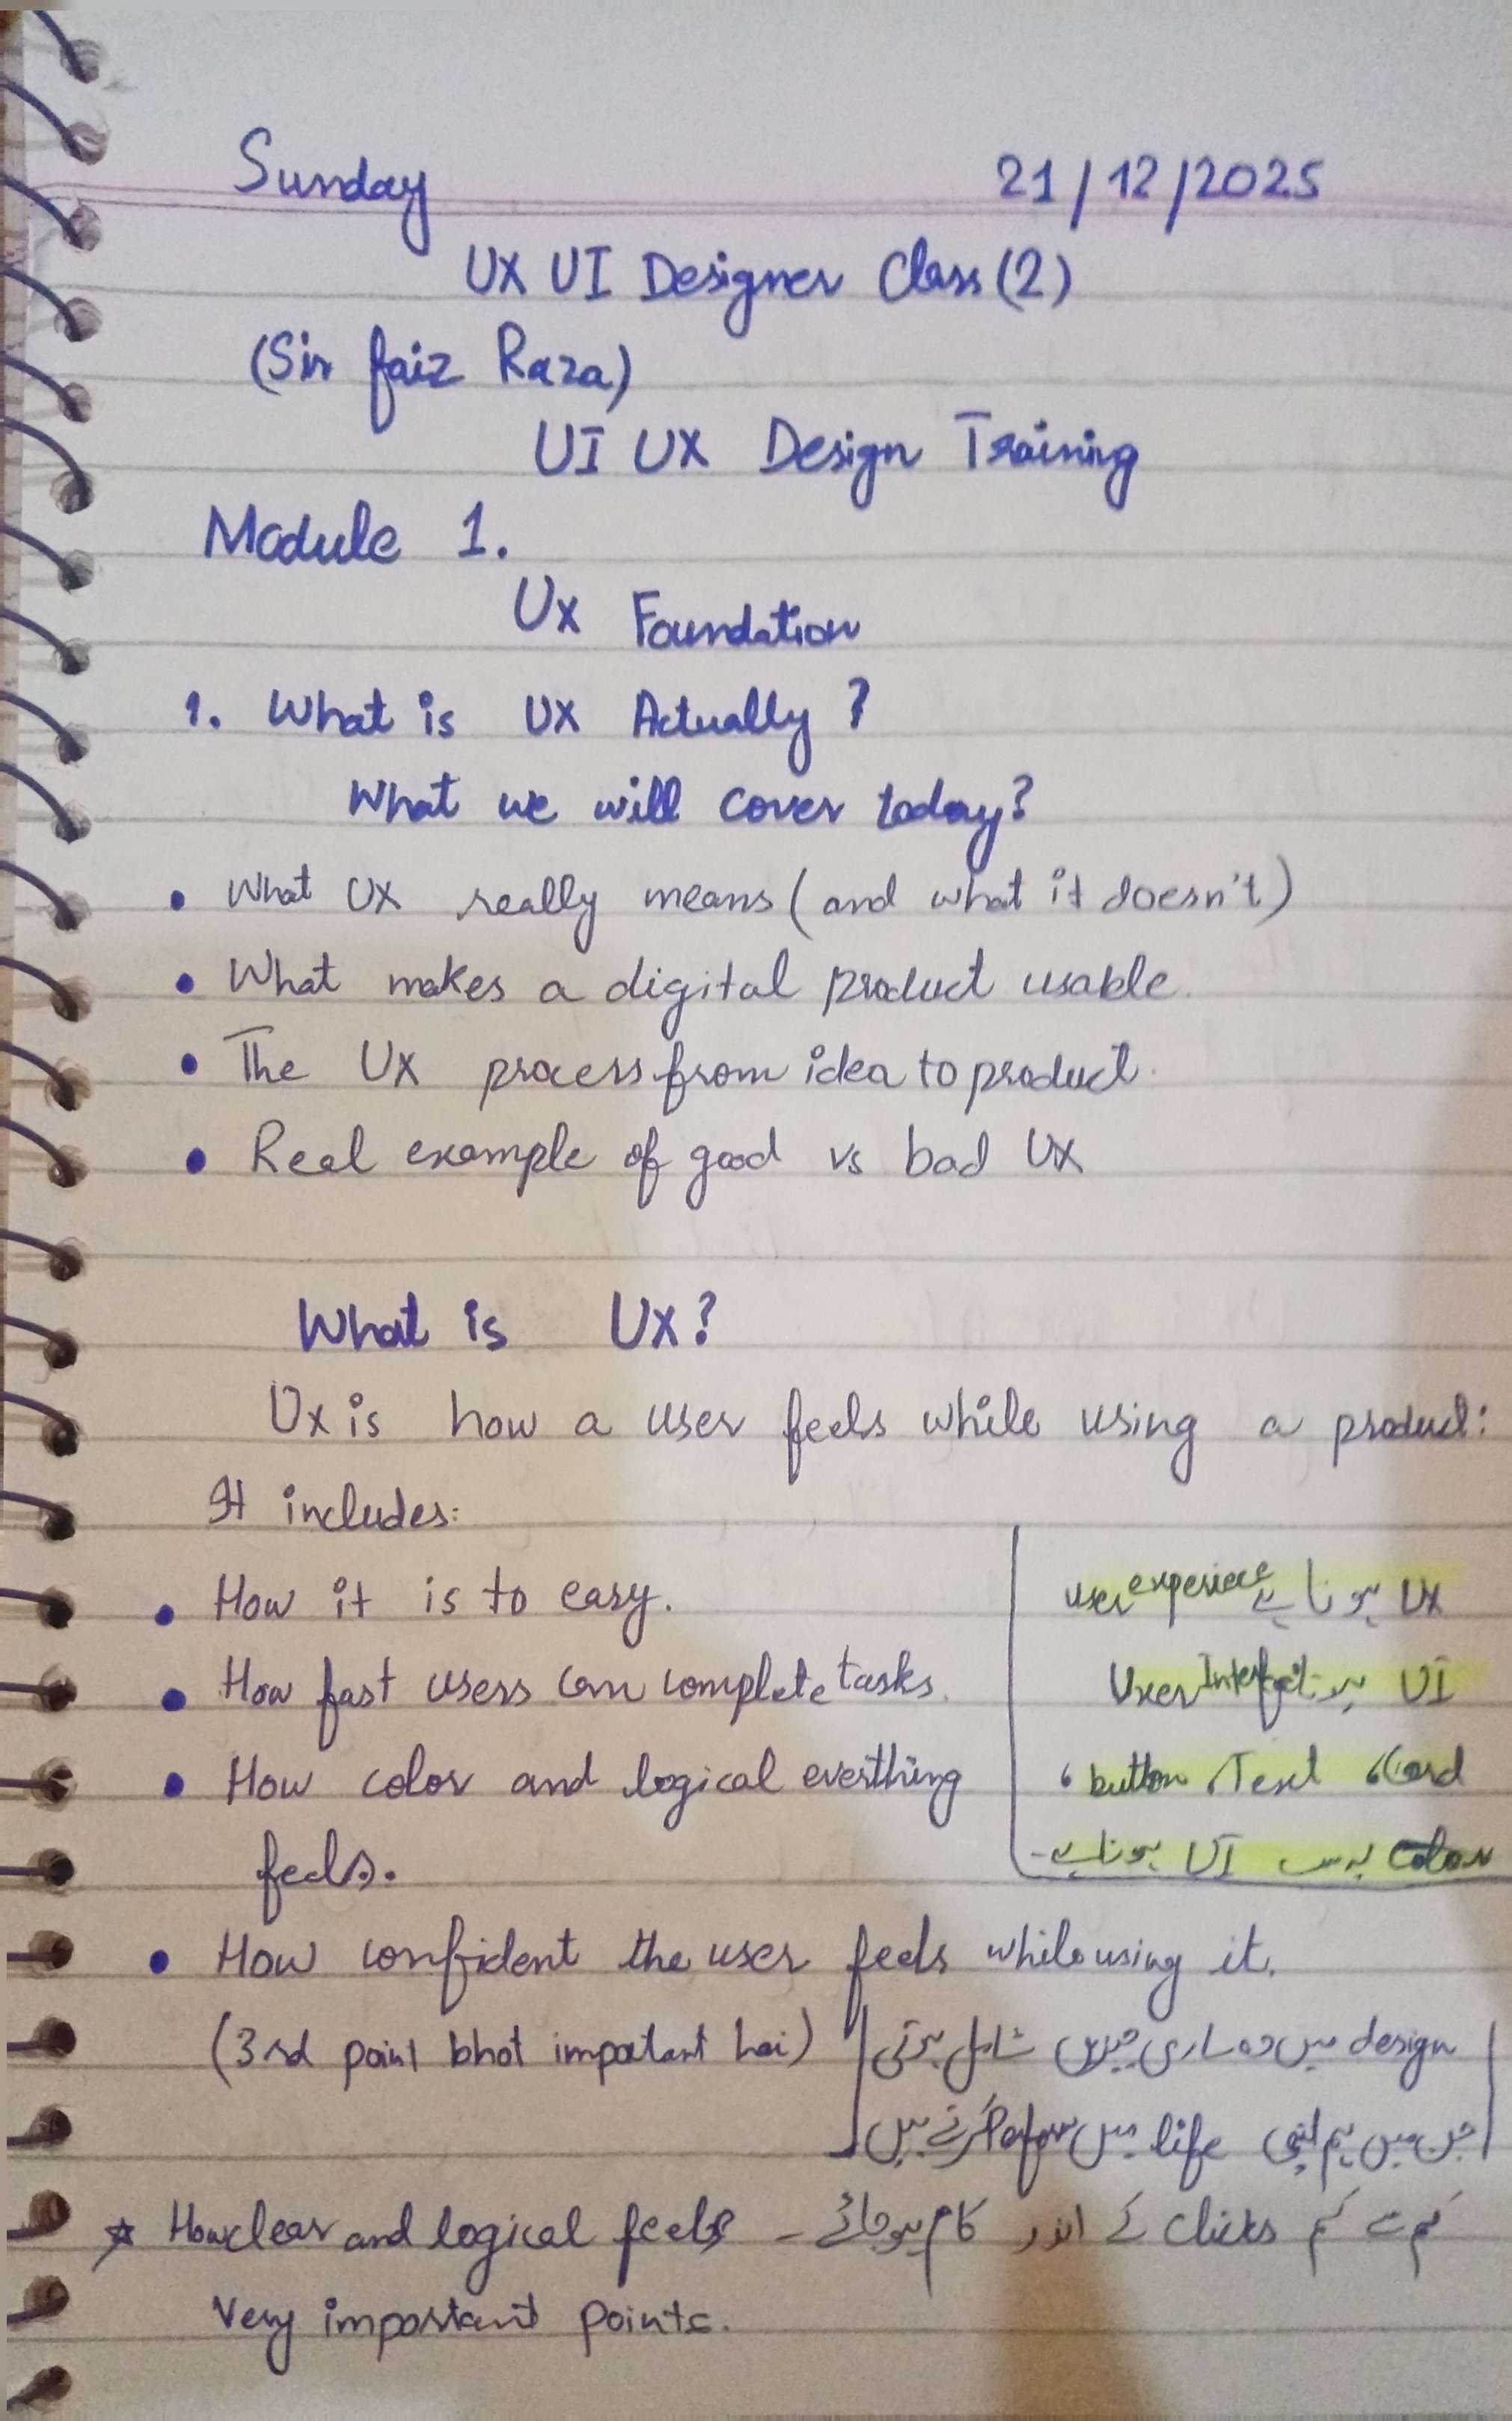 Sunday 21/12/2025
UX UI Designer Class (2)
(Sir faiz Raza)
UI UX Design Training
Module 1.
Ux Foundation
1. What is UX Actually?
What we will cover today?
• What UX really means (and what it doesn't)
• What makes a digital product usable.
• The UX process from idea to product.
• Real example of good vs bad UX
What is Ux?
Ux is how a user feels while using a product:
It includes:
• How it is to easy.
• How fast users can complete tasks.
• How color and logical everthing
feels.
UX ہوتا ہے user experiece
UI User Interface
Card، Text، button،
color یہ سب UI ہوتا ہے۔
• How confident the user feels while using it.
(3rd point bhot impotant hai)
design میں وہ ساری چیزیں شامل ہوتی
جن میں ہم اپنی life میں کرتے ہیں
☆ How clear and logical feels
کم سے کم clicks کے اندر کام ہو جائے۔
Very important points.